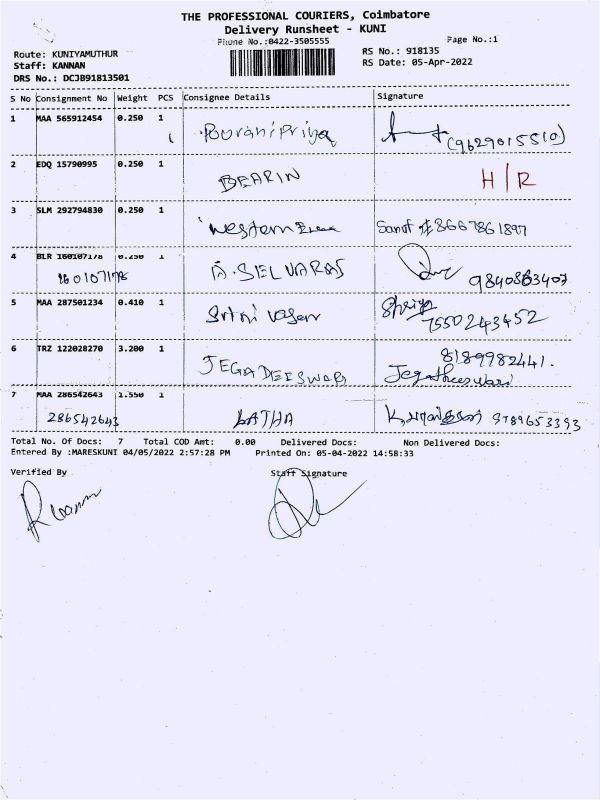 THE PROFESSIONAL COURIERS, Coimbatore
Delivery Runsheet - KUNI
Phone No.:0422-3505555 Page No.:1
Route: KUNIYAMUTHUR RS No.: 918135
Staff: KANNAN RS Date: 05-Apr-2022
DRS No.: DCJB91813501
S No Consignment No Weight PCS Consignee Details Signature
1 MAA 565912454 0.250 1 Poorani Priya (9629015510)
2 EDQ 15790995 0.250 1 BEARIN H/R
3 SLM 292794830 0.250 1 Western 8667861897
4 BLR 160107178 0.250 1 A. SELVARAJ
160107178 9840863407
5 MAA 287501234 0.410 1 Srini vasan Shriya
7550243452
6 TRZ 122028270 3.200 1 JEGADEESWARI 8189982441.
Jegatheeswari
7 MAA 286542643 1.550 1
286542643 LATHA 9789653393
Total No. Of Docs: 7 Total COD Amt: 0.00 Delivered Docs: Non Delivered Docs:
Entered By :MARESKUNI 04/05/2022 2:57:28 PM Printed On: 05-04-2022 14:58:33
Verified By Staff Signature